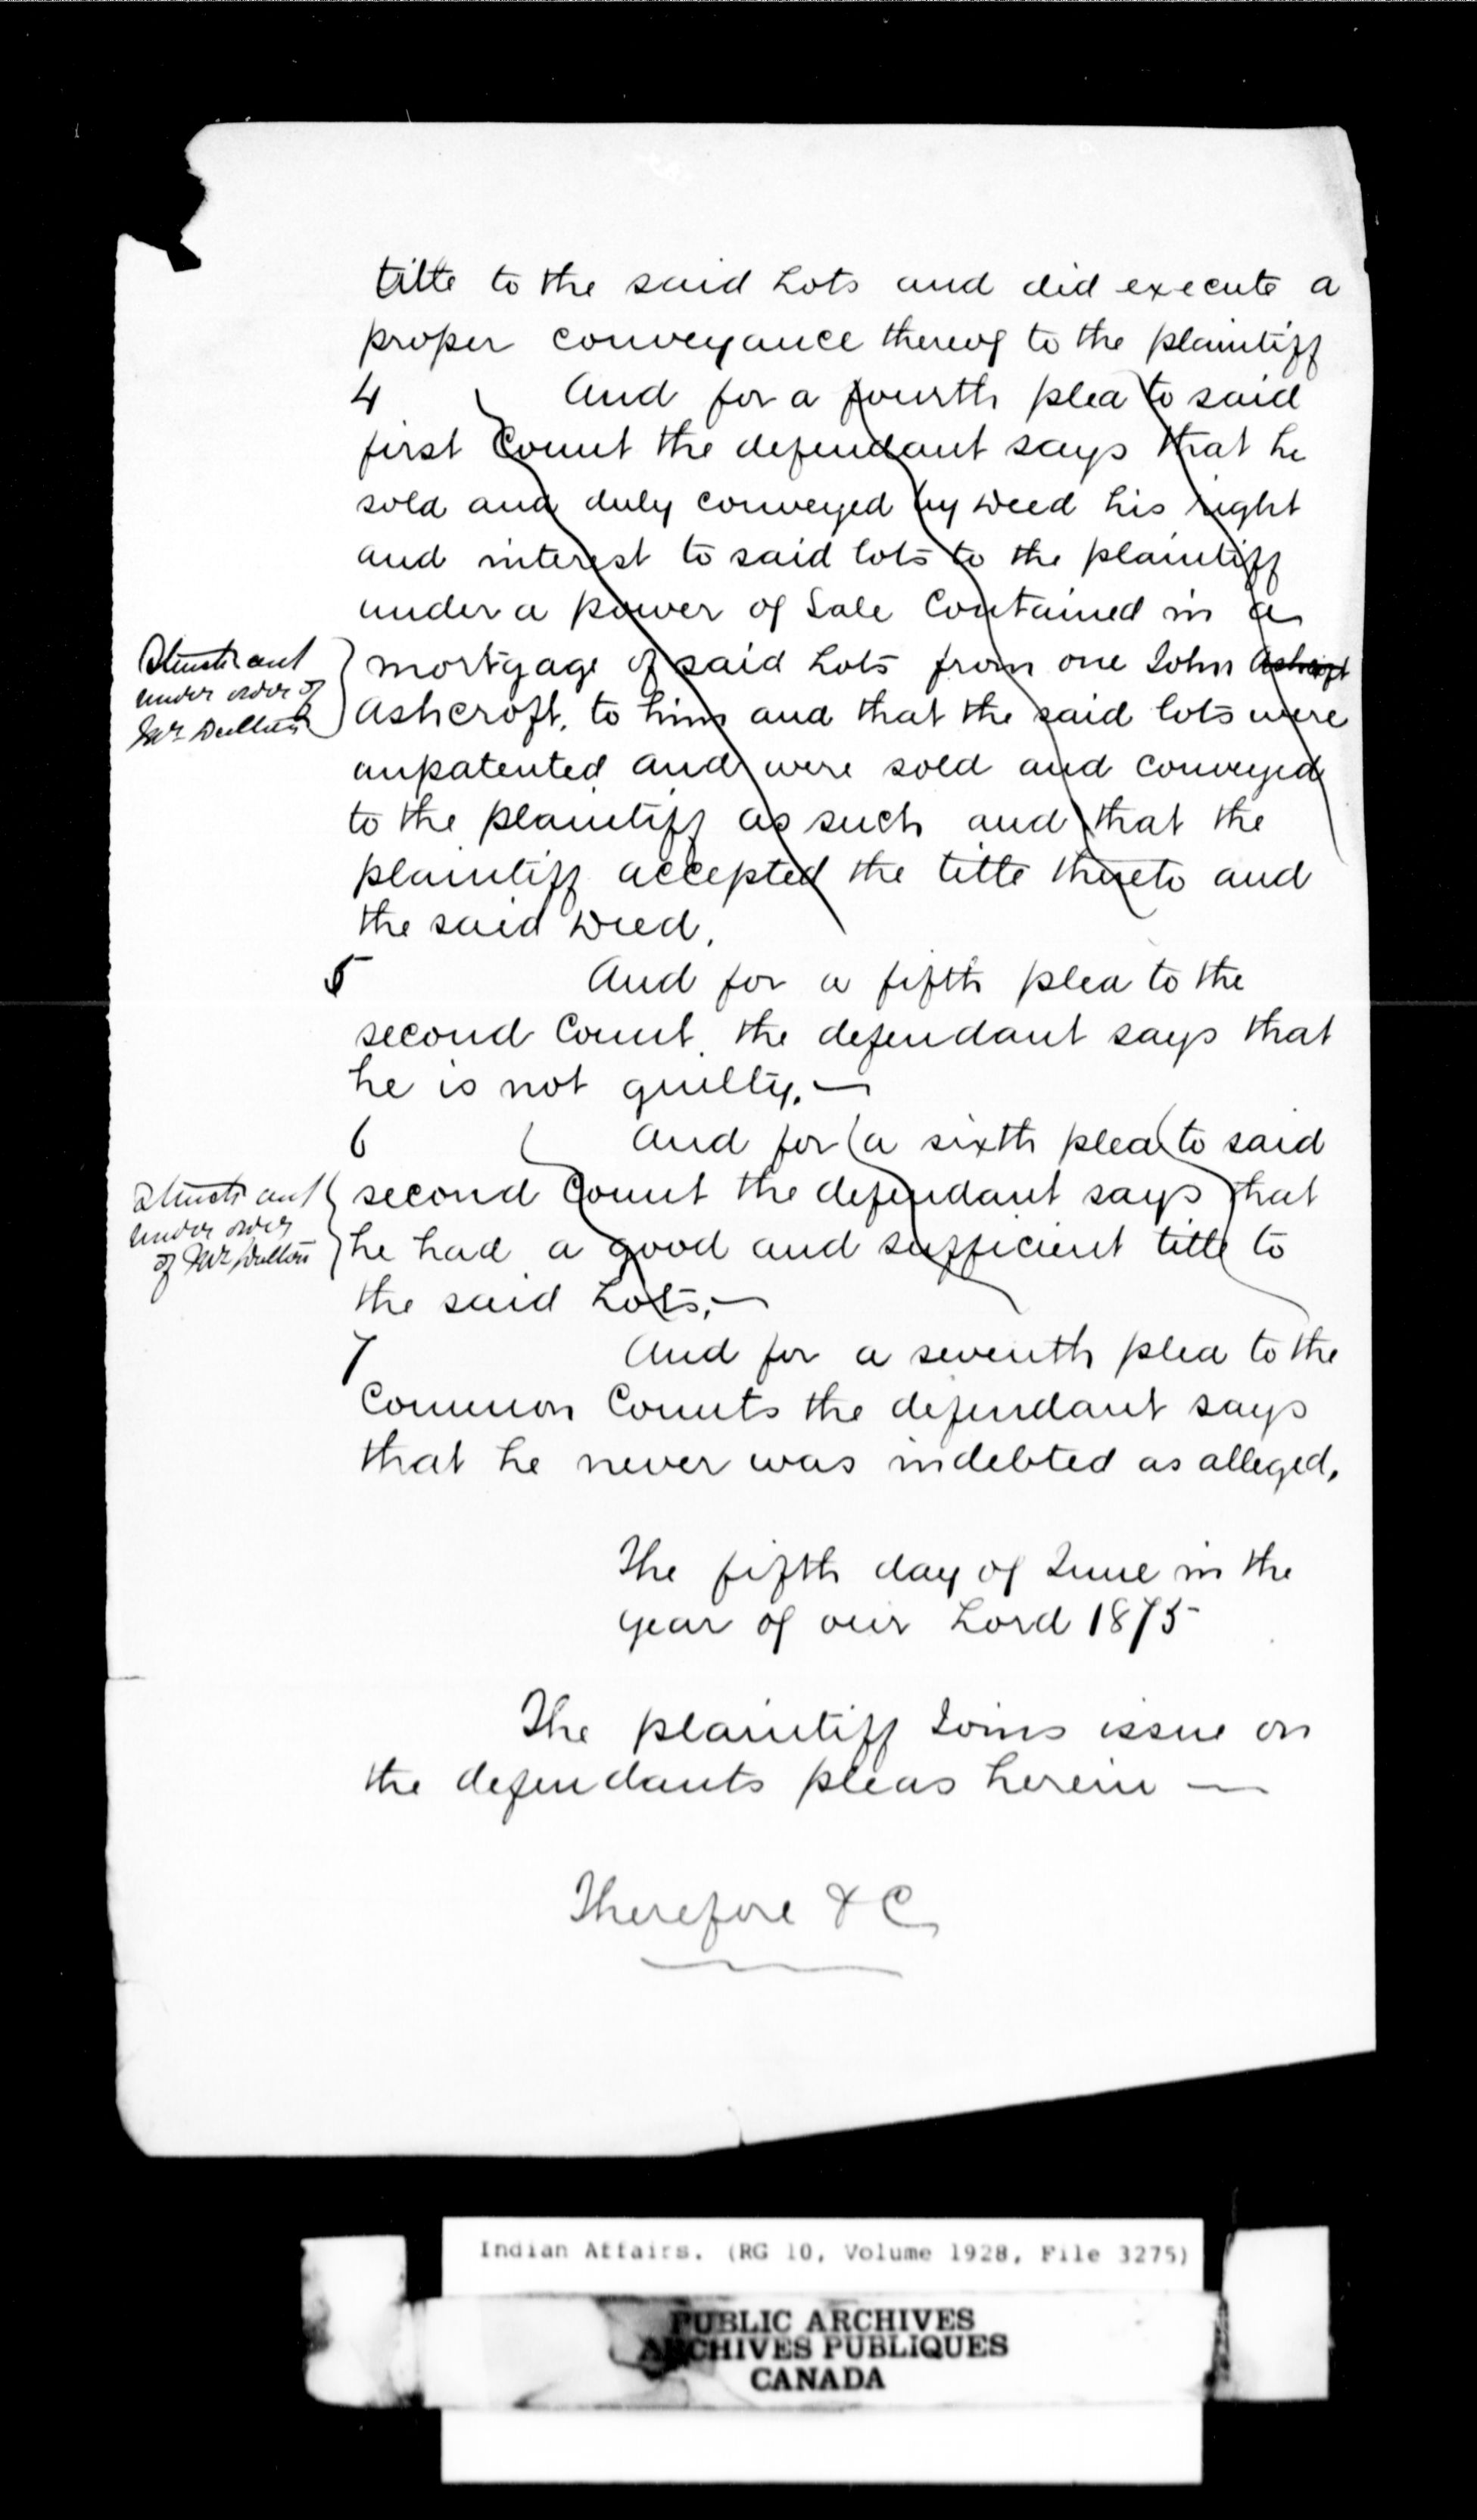 title to the said Lots and did execute a
proper conveyance thereof to the plaintiff
4 And for a fourth plea to said
first Count the defendant says that he
sold and duly conveyed by Deed his right
and interest to said lots to the plaintiff
under a power of Sale Contained in a
mortgage of said Lots from one John Ashcroft
Ashcroft, to him and that the said lots were
unpatented and were sold and conveyed
to the plaintiff as such and that the
plaintiff accepted the title thereto and
the said Deed.
Struck out
under order of
Mr Dalton
5 And for a fifth plea to the
second Count the defendant says that
he is not guilty.—
6 And for a sixth plea to said
second Count the defendant says that
he had a good and sufficient title to
the said Lots.—
Struck out
under order
of Mr Dalton
7 And for a seventh plea to the
Common Counts the defendant says
that he never was indebted as alleged.
The fifth day of June in the
year of our Lord 1875
The plaintiff Joins issue on
the defendants pleas herein —
Therefore &C
Indian Affairs. (RG 10, Volume 1928, File 3275)
PUBLIC ARCHIVES
ARCHIVES PUBLIQUES
CANADA